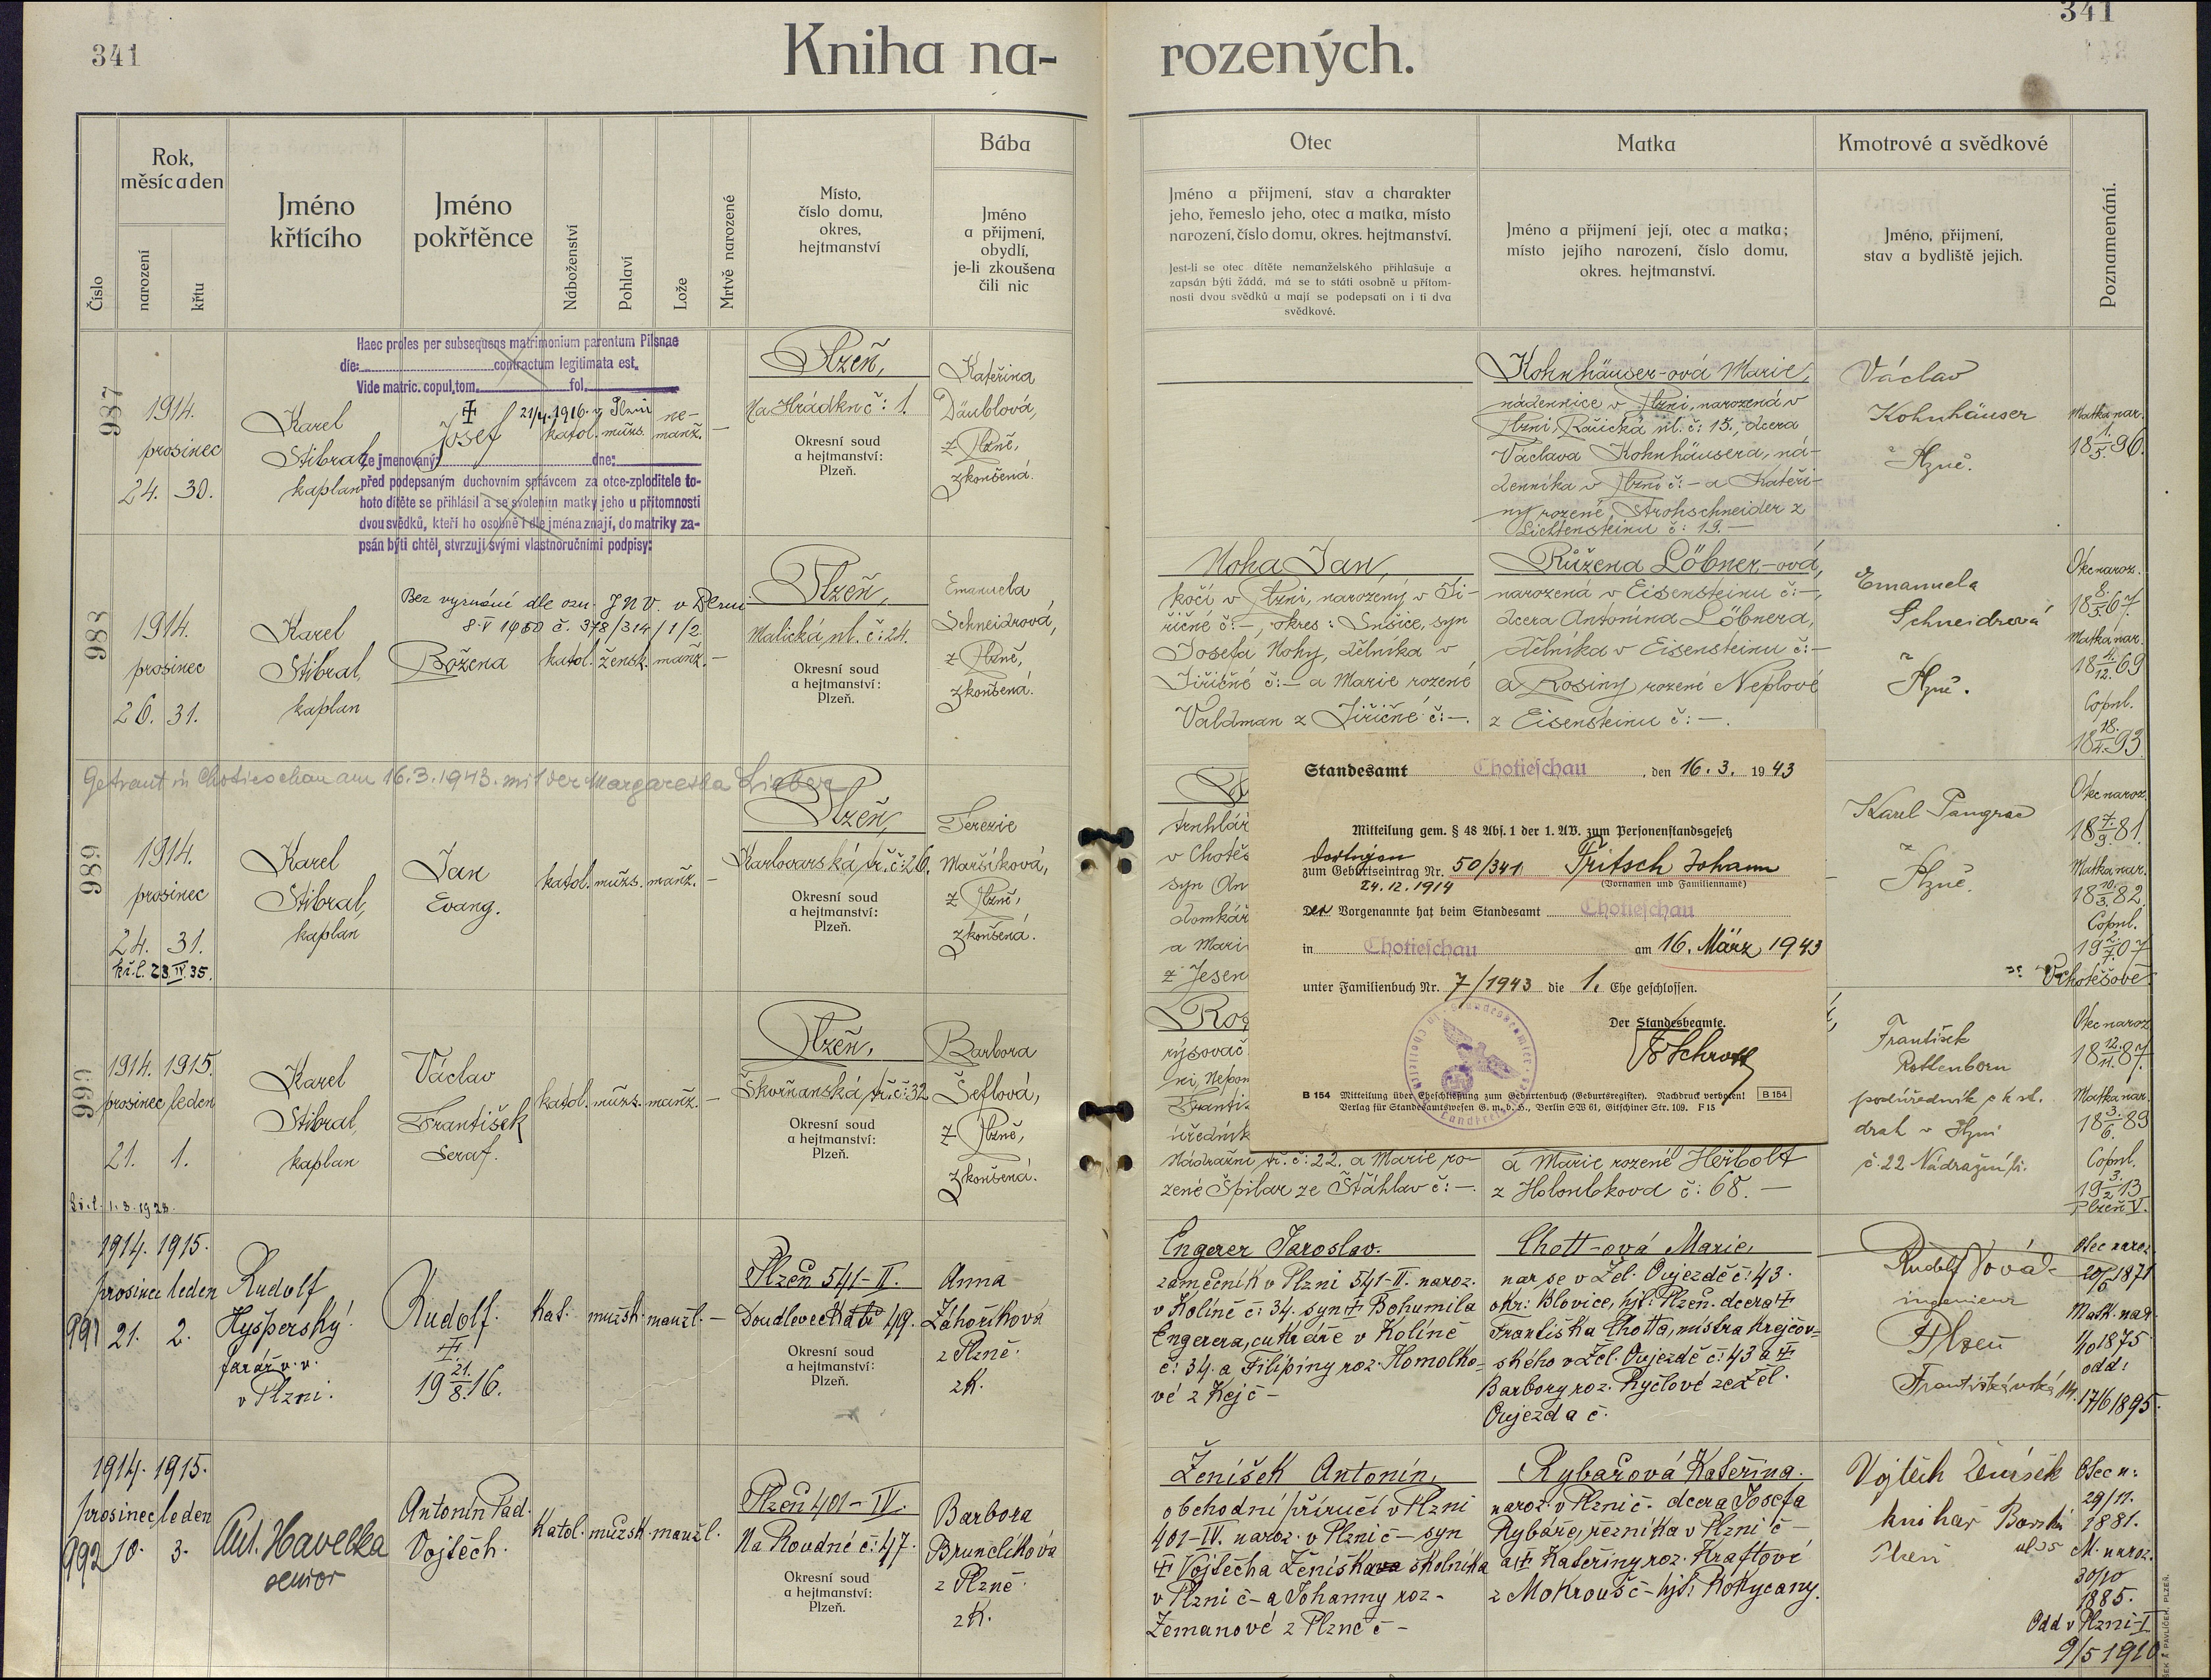 341
341
Kniha na-
rozených.
Číslo
Rok,
měsíc a den
narození
křtu
Jméno
křtícího
Jméno
pokřtěnce
Náboženství
Pohlaví
Lože
Mrtvě narozené
Místo,
číslo domu,
okres,
hejtmanství
Bába
Jméno
a přijmení,
obydlí,
je-li zkoušena
čili nic
Otec
Jméno a přijmení, stav a charakter
jeho, řemeslo jeho, otec a matka, místo
narození, číslo domu, okres. hejtmanství.
Jest-li se otec dítěte nemanželského přihlašuje a
zapsán býti žádá, má se to státi osobně u přítom-
nosti dvou svědků a mají se podepsati on i ti dva
svědkové.
Matka
Jméno a přijmení její, otec a matka;
místo jejího narození, číslo domu,
okres. hejtmanství.
Kmotrové a svědkové
Jméno, přijmení,
stav a bydliště jejich.
Poznamenání.
Haec proles per subsequens matrimonium parentum Pilsnae
die: contractum legitimata est.
Vide matric. copul. tom. fol.
987
1914.
prosinec
24. 30.
Karel
Stibral,
kaplan
Josef
21/4. 1916. v Plzni
katol. mužs. ne-
manž. —
Že jmenovaný: dne:
před podepsaným duchovním správcem za otce-zploditele to-
hoto dítěte se přihlásil a se svolením matky jeho u přítomnosti
dvou svědků, kteří ho osobně i dle jména znají, do matriky za-
psán býti chtěl, stvrzují svými vlastnoručními podpisy:
Plzeň,
Na Hrádku č: 1.
Okresní soud
a hejtmanství:
Plzeň.
Kateřina
Däublová,
z Plzně,
zkoušená.
Kohnhäuser-ová Marie,
nádennice v Plzni, narozená v
Plzni, ul. č: 15., dcera
Václava Kohnhäusera, ná-
denníka v Plzni č: — a Kateři-
ny rozené Strohschneider z
Lichtensteinu č: 19. —
Václav
Kohnhäuser
z Plzně.
Matka nar.
18 1./5. 96.
988
1914.
prosinec
26. 31.
Karel
Stibral,
kaplan
Bez vyznání dle ozn. JNV. v Plzni
8. V 1950 č. 378/314/1/2.
Božena
katol. žensk. manž. —
Plzeň,
Malická ul. č: 24.
Okresní soud
a hejtmanství:
Plzeň.
Emanuela
Schneidrová,
z Plzně,
zkoušená.
Noha Jan,
kočí v Plzni, narozený v Ji-
řičné č: —, okres: Sušice, syn
Josefa Nohy, dělníka v
Jiřičné č: — a Marie rozené
Valdman z Jiřičné č: —.
Růžena Löbner-ová,
narozená v Eisensteinu č: —,
dcera Antonína Löbnera,
dělníka v Eisensteinu č: —
a Rosiny rozené Neplové
z Eisensteinu č: —.
Emanuela
Schneidrová
z Plzně.
Otec naroz.
18 8./5. 67.
Matka nar.
18 4./12. 69
Copul.
18 18./4. 93
Getraut in Chotieschau am 16.3.1943. mit der Margaretha Lieber
989
1914.
prosinec
24. 31.
kř. l. 23. IV. 35.
Karel
Stibral,
kaplan
Jan
Evang.
katol. mužs. manž. —
Plzeň,
Karlovarská tř. č: 26.
Okresní soud
a hejtmanství:
Plzeň.
Terezie
Maršíková,
z Plzně,
zkoušená.
truhlář
v Chotěš
syn An
domkář
a Mari
z Jesen
Karel Pangrac
z Plzně.
Otec naroz.
18 7./9. 81.
Matka nar.
18 10./3. 82.
Copul.
19 2./7. 07
v Chotěšově
Standesamt Chotieschau, den 16. 3. 1943
Mitteilung gem. § 48 Abs. 1 der 1. AV. zum Personenstandsgesetz
dortigen
zum Geburtseintrag Nr. 50/341 Fritsch Johann
24.12.1914 (Vornamen und Familienname)
Der Vorgenannte hat beim Standesamt Chotieschau
in Chotieschau am 16. März 1943
unter Familienbuch Nr. 7/1943 die 1. Ehe geschlossen.
Der Standesbeamte.
B 154 Mitteilung über Eheschließung zum Geburtenbuch (Geburtsregister). Nachdruck verboten! B 154
Verlag für Standesamtswesen G. m. b. H., Berlin SW 61, Gitschiner Str. 109. F 15
990
1914. 1915.
prosinec leden
21. 1.
Kř. l. 1. 3. 1928.
Karel
Stibral,
kaplan
Václav
František
Seraf.
katol. mužs. manž. —
Plzeň,
Škvrňanská tř. č: 32
Okresní soud
a hejtmanství:
Plzeň.
Barbora
Šeflová,
z Plzně,
zkoušená.
Ros
rýsovač
ni, Nepom
Franti
úředník
Nádražní tř. č: 22. a Marie ro-
zené Špilar ze Šťáhlav č: —.
a Marie rozené Herbolt
z Holoubkova č: 68. —
František
Rottenborn
podúředník c. k. st.
drah v Plzni
č. 22 Nádražní tř.
Otec naroz.
18 12./11. 87.
Matka nar.
18 3./6. 89
Copul.
19 3./2. 13
Plzeň V.
991
1914. 1915.
prosinec leden
21. 2.
Rudolf
Hyšperský
farář v. v.
v Plzni.
Rudolf.
19 21./8. 16.
Kat. mužsk. manžl. —
Plzeň 541-II.
Doudlevecká tř 49.
Okresní soud
a hejtmanství:
Plzeň.
Anna
Záhoříková
z Plzně.
zk.
Engerer Jaroslav.
zámečník v Plzni 541-II. naroz.
v Kolíně č: 34. syn † Bohumila
Engerera, cukráře v Kolíně
č: 34. a Filipiny roz. Homolko-
vé z Kejč —
Chott-ová Marie,
nar se v Žel. Oujezdě č: 43.
okr: Blovice, hjt: Plzeň. dcera †
Františka Chotta, mistra krejčov-
ského v Žel. Oujezdě č: 43 a †
Barbory roz. Ryčlové ze Žel.
Oujezda č.
Rudolf Nová-
ingenieur
Plzeň
Františkánská
Otec naroz.
20/5 1871
Matk. nar.
1/10 1875
odd:
17/6 1895.
992
1914. 1915.
prosinec leden
10. 3.
Ant. Havelka
senior
Antonín Pad.
Vojtěch.
Katol. mužsk. manžl.
Plzeň 401-IV.
Na Roudné č: 47.
Okresní soud
a hejtmanství:
Plzeň.
Barbora
Brunclíková
z Plzně.
zk.
Ženíšek Antonín,
obchodní příručí v Plzni
401-IV. naroz. v Plzni č — syn
† Vojtěcha Ženíška školníka
v Plzni č — a Johanny roz —
Zemanové z Plzně č —
Rybářová Kateřina.
naroz. v Plzni č. dcera Josefa
Rybáře, řezníka v Plzni č —
a † Kateřiny roz. Kraftové
z Mokrouš č — hjt: Rokycany.
Vojtěch Ženíšek
knihař
Plzeň
Otec n:
29/11.
1881.
M. naroz.
30/10
1885.
Odd v Plzni-I
9/5 1910.